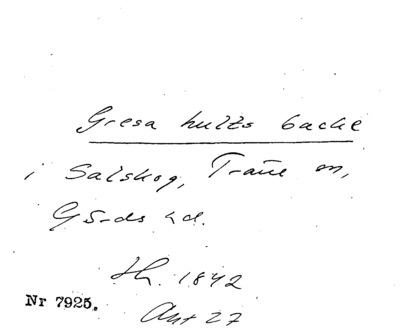 Gresa hults backe
i Salskog, Träne sn,
Gärds hd.
1842
Nr 7925.
Ant 27